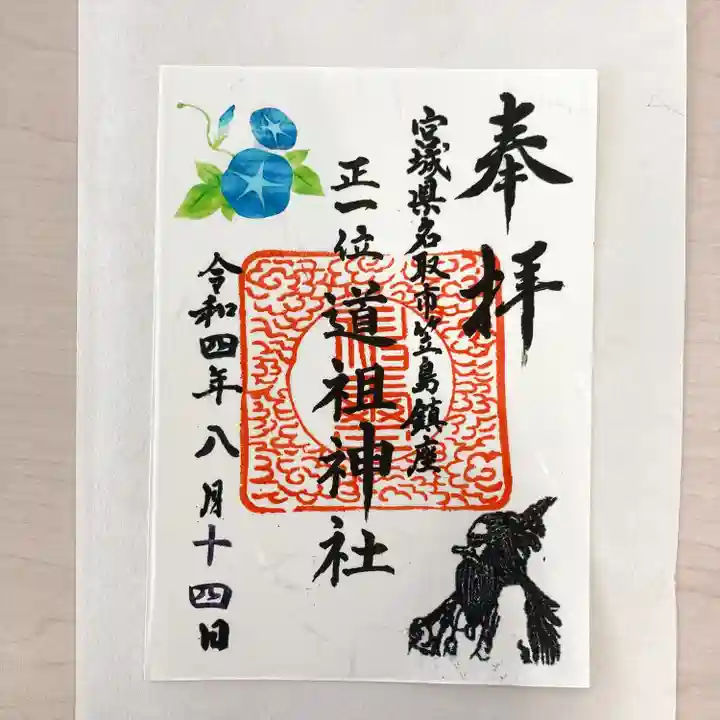 奉拝
宮城県名取市笠島鎮座
正一位 道祖神社
令和四年八月十四日